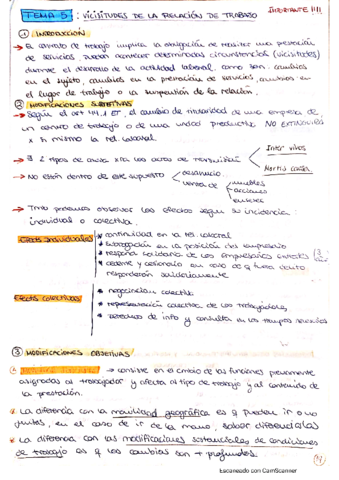 TEMA 5: VICISITUDES DE LA RELACIÓN DE TRABAJO
IMPORTANTE !!!!
① INTRODUCCIÓN
→ El contrato de trabajo implica la obligación de realizar una prestación
de servicios, pueden acontecer determinadas circunstancias (vicisitudes)
durante el desarrollo de la actividad laboral como son: cambios
en el sujeto, cambios en la prestación de servicios, cambios en
el lugar de trabajo o la suspensión de la relación.
② MODIFICACIONES SUBJETIVAS
→ Según el art 44.1 ET, el cambio de titularidad de una empresa de
un centro de trabajo o de una unidad productiva NO EXTINGUIRÁ
x sí mismo la rel. laboral
→ 2 tipos de causa xa los actos de
Inter vivos
Mortis causa
→ No están dentro de este supuesto
venta de
muebles
acciones
→ podemos observar los efectos según su incidencia:
individual o colectiva.
Efectos individuales
* continuidad en la rel. laboral
* subrogación en la posición del empresario
* respons. solidaria de los empresarios
* cedente y cesionario en caso de q fuera delito
responderán solidariamente
Efectos colectivos
* negociación colectiva
* representación colectiva de los trabajadores
* derechos de info y consulta en los
③ MODIFICACIONES OBJETIVAS
→ consiste en el cambio de las funciones previamente
asignadas al trabajador y afecta al tipo de trabajo y al contenido de
la prestación.
La diferencia con la movilidad geográfica es q pueden ir o no
juntas, en el caso de ir de la mano, saber diferenciarlas
La diferencia con las modificaciones sustanciales de condiciones
de trabajo es q los cambios son + profundos.
Escaneado con CamScanner